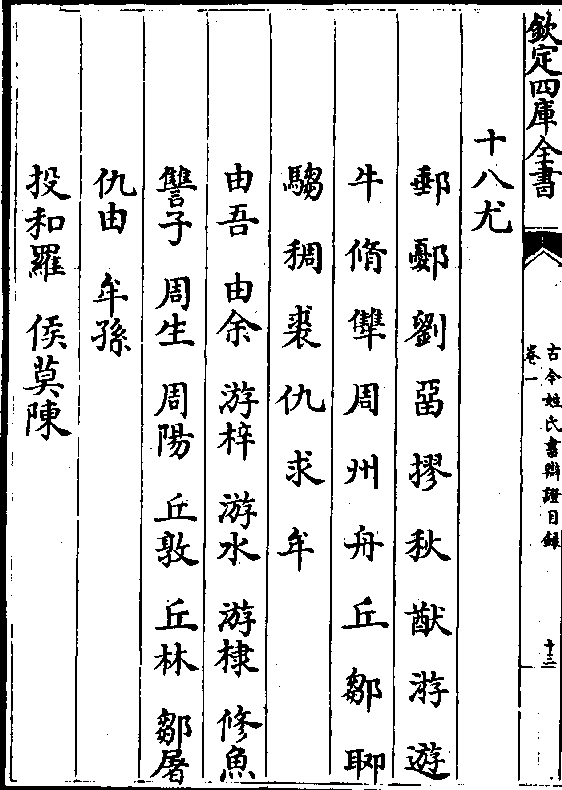 欽定四庫全書
古今姓氏書辯證目録
卷一
十三
十八尤
郵 鄾 劉 畱 摎 秋 猷 游 遊
牛 脩 犨 周 州 舟 丘 鄒 郰
騶 稠 裘 仇 求 牟
由吾 由余 游梓 游水 游棣 修魚
讐子 周生 周陽 丘敦 丘林 鄒屠
仇由 牟孫
投和羅 侯莫陳